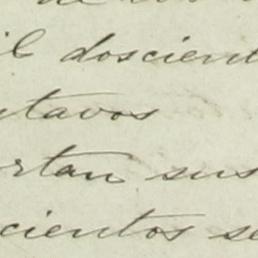 il doscient
ntavos
rtan sus
cientos se